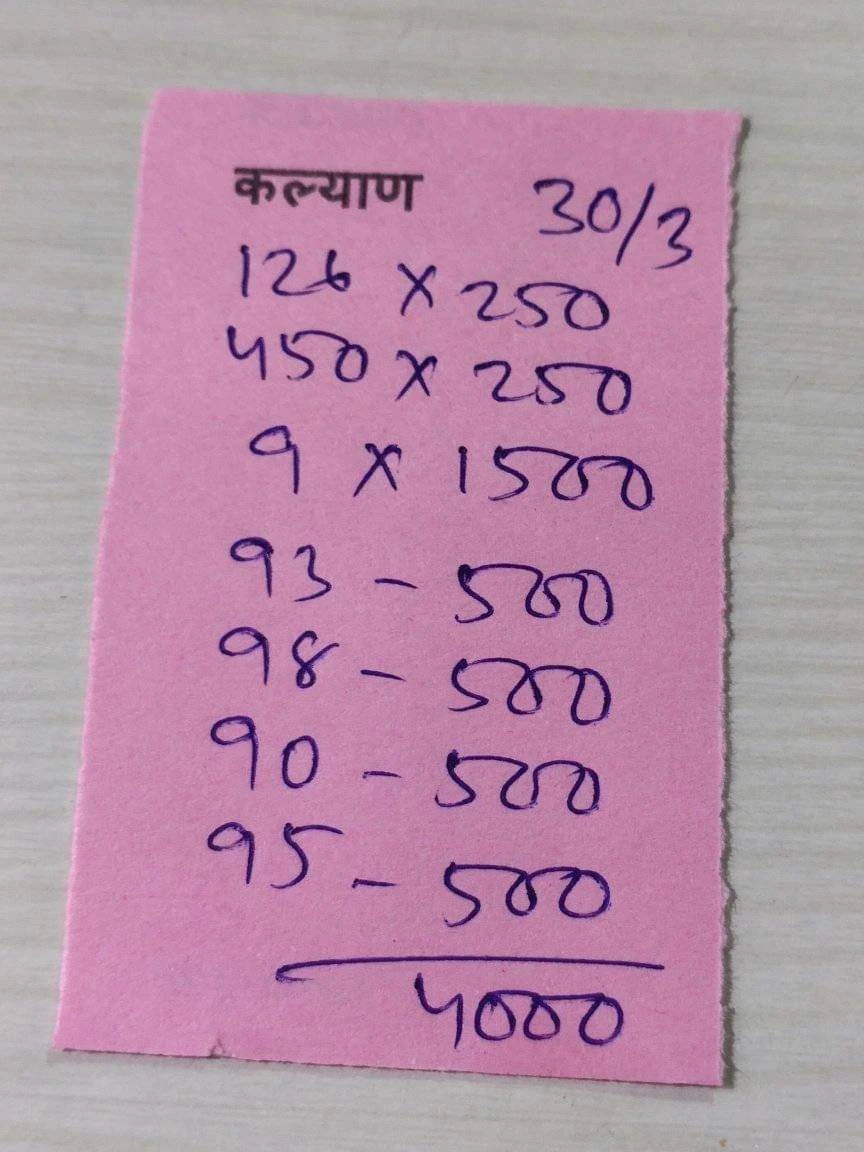 कल्याण 30/3
126 x 250
450 x 250
9 x 1500
93 - 500
98 - 500
90 - 500
95 - 500
4000